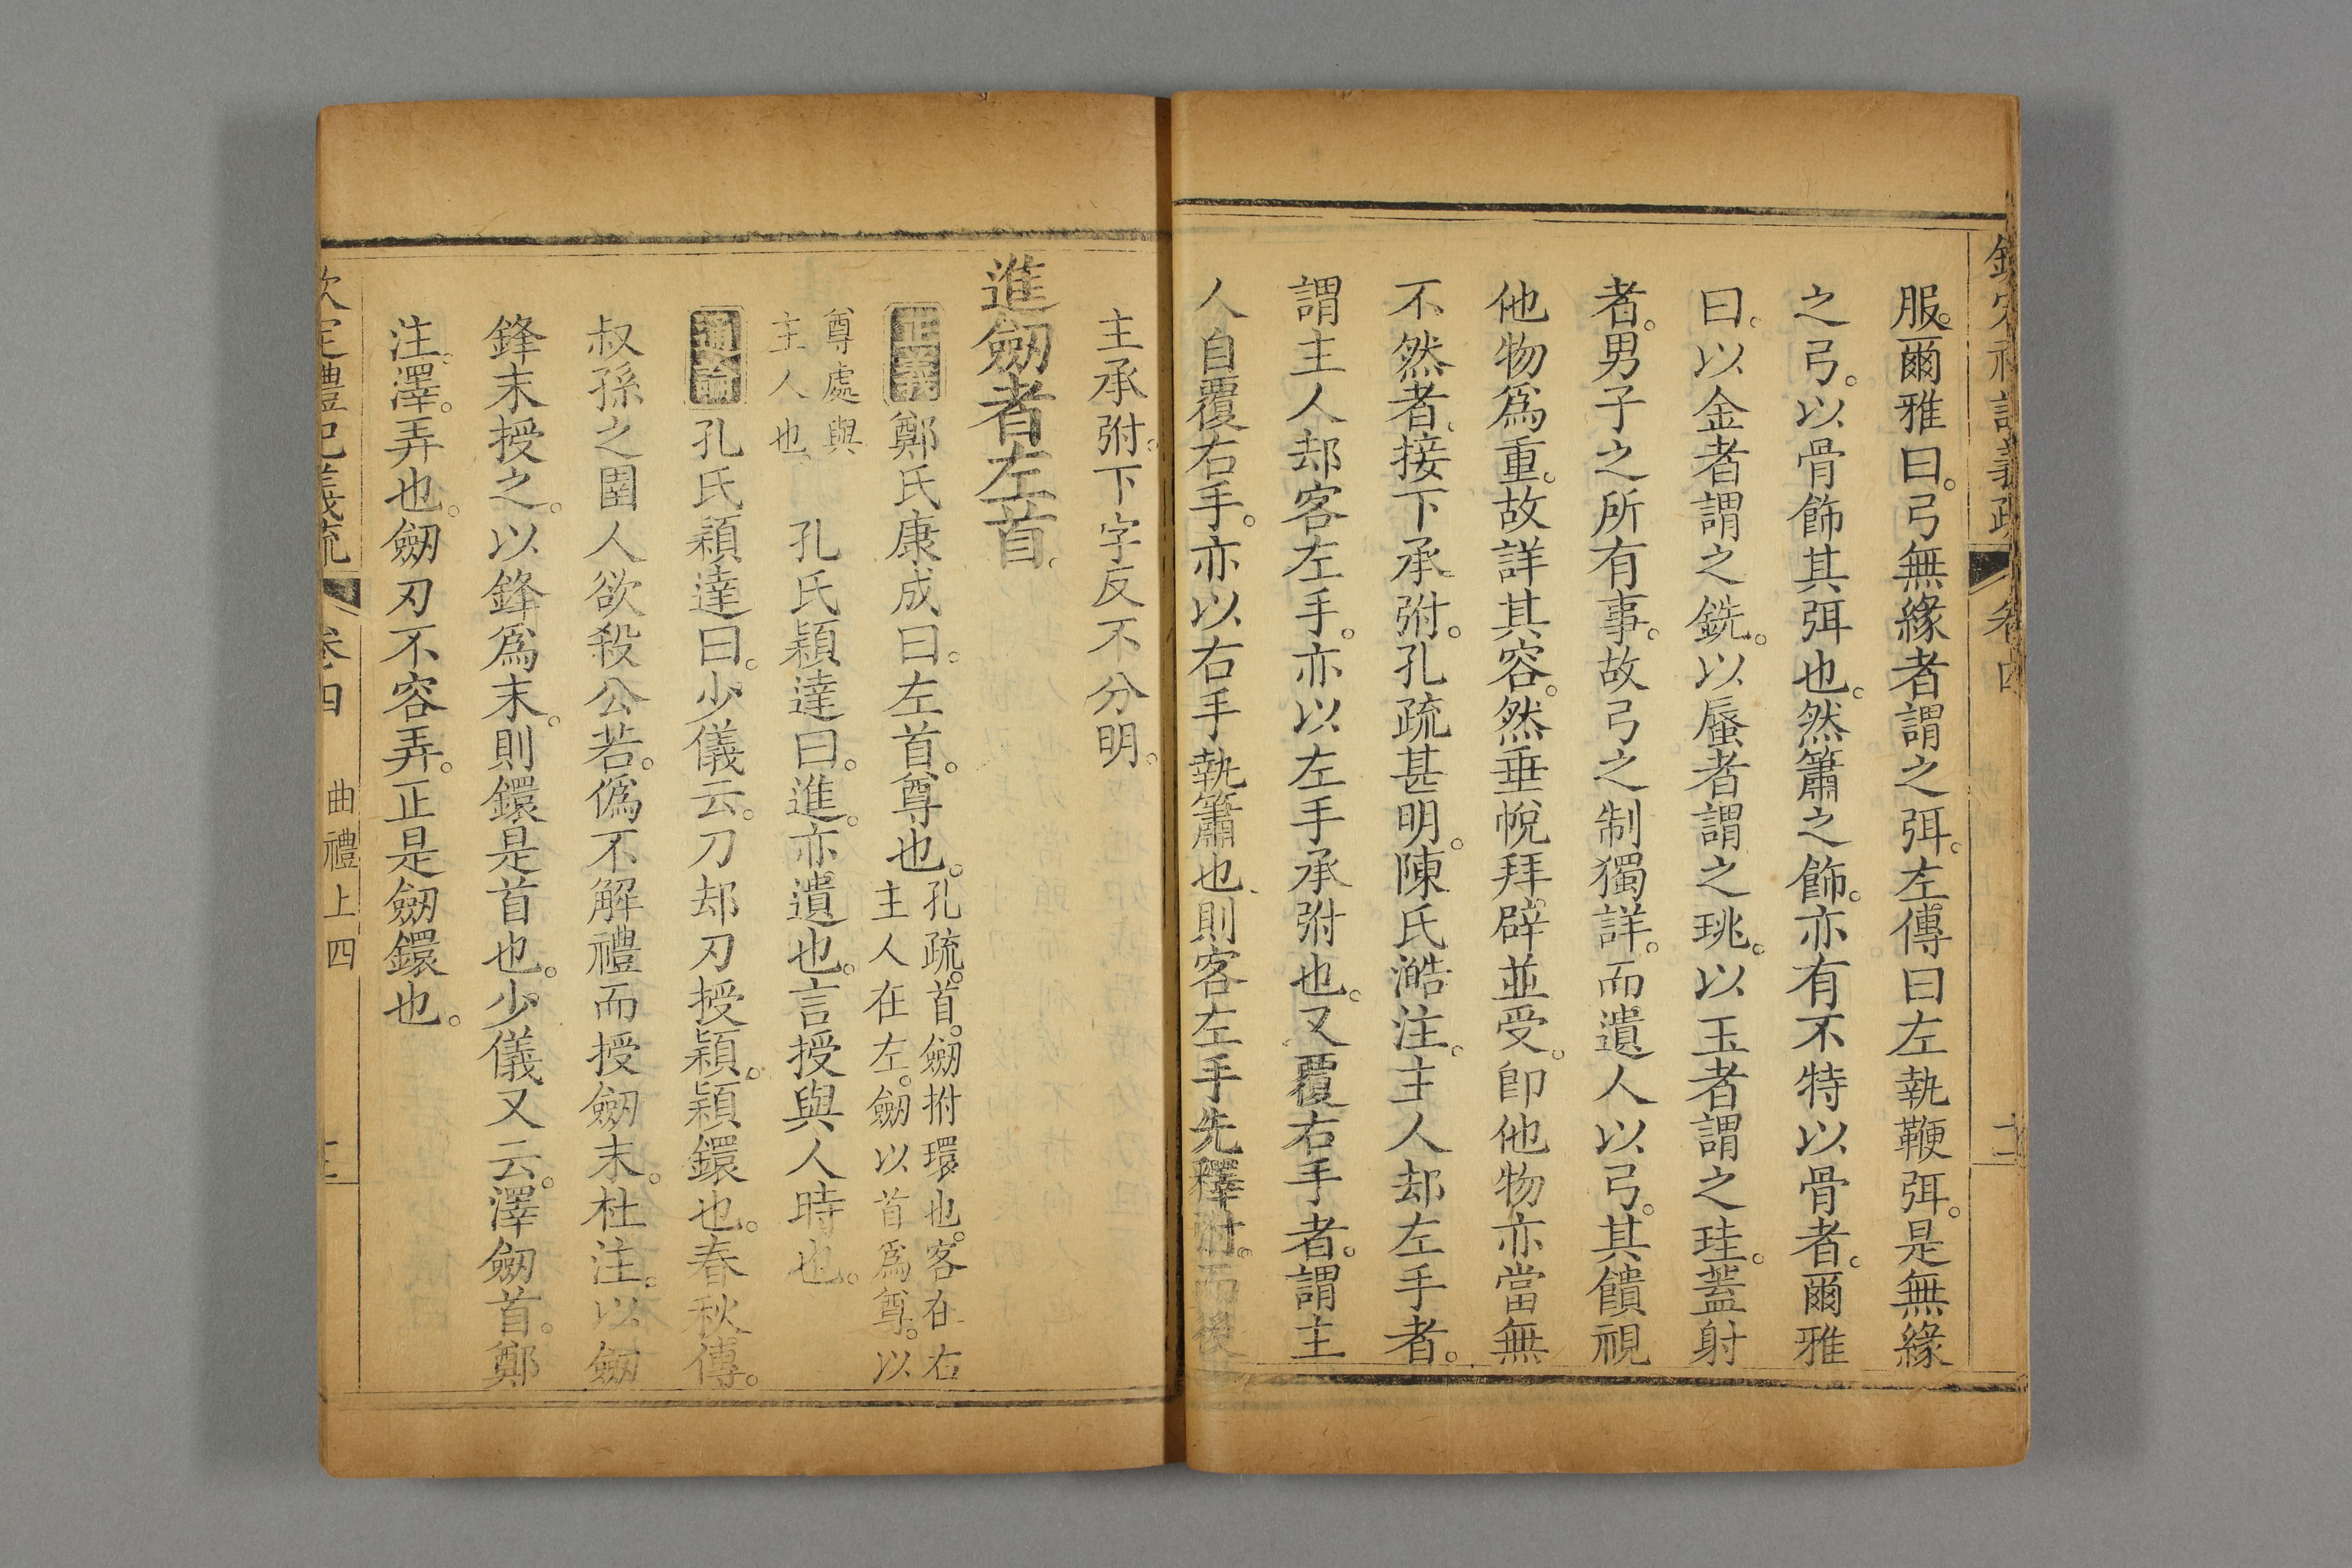 欽定禮記義疏 卷四
服。爾雅曰。弓無緣者謂之弭。左傳曰左執鞭弭。是無緣
之弓。以骨飾其弭也。然簫之飾。亦有不特以骨者。爾雅
曰。以金者謂之銑。以蜃者謂之珧。以玉者謂之珪。蓋射
者。男子之所有事。故弓之制獨詳。而遺人以弓。其饋視
他物爲重。故詳其容。然垂帨拜辟並受。卽他物亦當無
不然者、接下承弣。孔疏甚明。陳氏澔注。主人却左手者。
謂主人却客左手。亦以左手承弣也。又覆右手者。謂主
人自覆右手。亦以右手執簫也、則客左手先釋弣。而後
主承弣。下字反不分明。
進劒者左首。
正義 鄭氏康成曰。左首。尊也。孔疏。首。劒拊環也。客在右
主人在左。劒以首爲尊。以
尊處與
主人也。 孔氏穎達曰。進。亦遺也。言授與人時也。
通論 孔氏穎達曰。少儀云。刀却刃授穎。穎鐶也。春秋傳。
叔孫之圉人欲殺公若。僞不解禮而授劒末。杜注。以劒
鋒末授之。以鋒爲末。則鐶是首也。少儀又云。澤劒首。鄭
注。澤。弄也。劒刃不容弄。正是劒鐶也。
欽定禮記義疏 卷四 曲禮上四